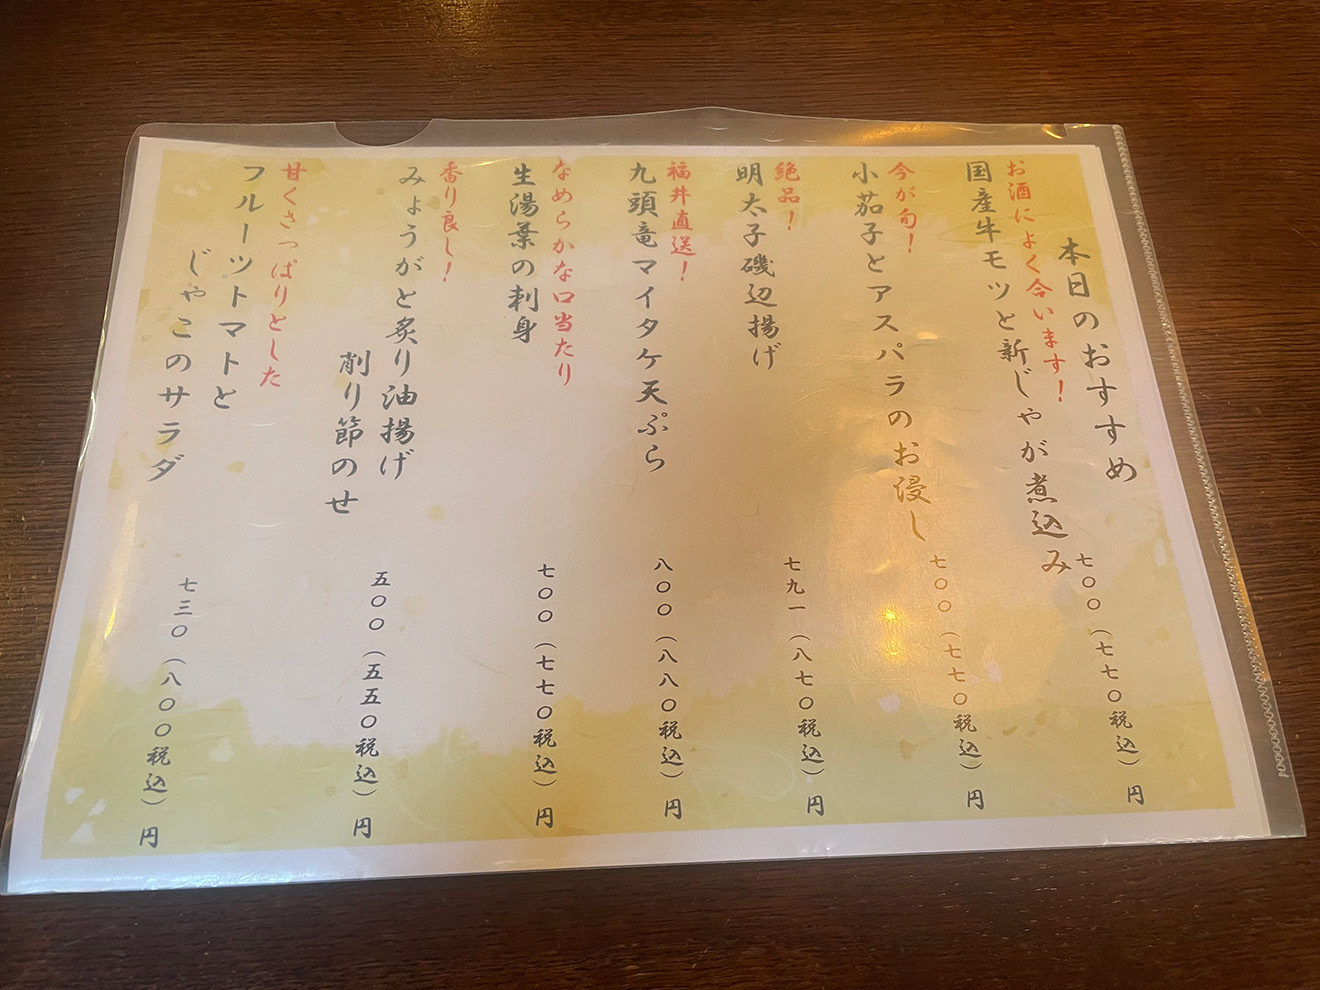 本日のおすすめ
お酒によく合います！
国産牛モツと新じゃが煮込み
七〇〇（七七〇税込）円
今が旬！
小茄子とアスパラのお浸し
七〇〇（七七〇税込）円
絶品！
明太子磯辺揚げ
七九一（八七〇税込）円
福井直送！
九頭竜マイタケ天ぷら
八〇〇（八八〇税込）円
なめらかな口当たり
生湯葉の刺身
七〇〇（七七〇税込）円
香り良し！
みょうがと炙り油揚げ
削り節のせ
五〇〇（五五〇税込）円
甘くさっぱりとした
フルーツトマトと
じゃこのサラダ
七三〇（八〇〇税込）円